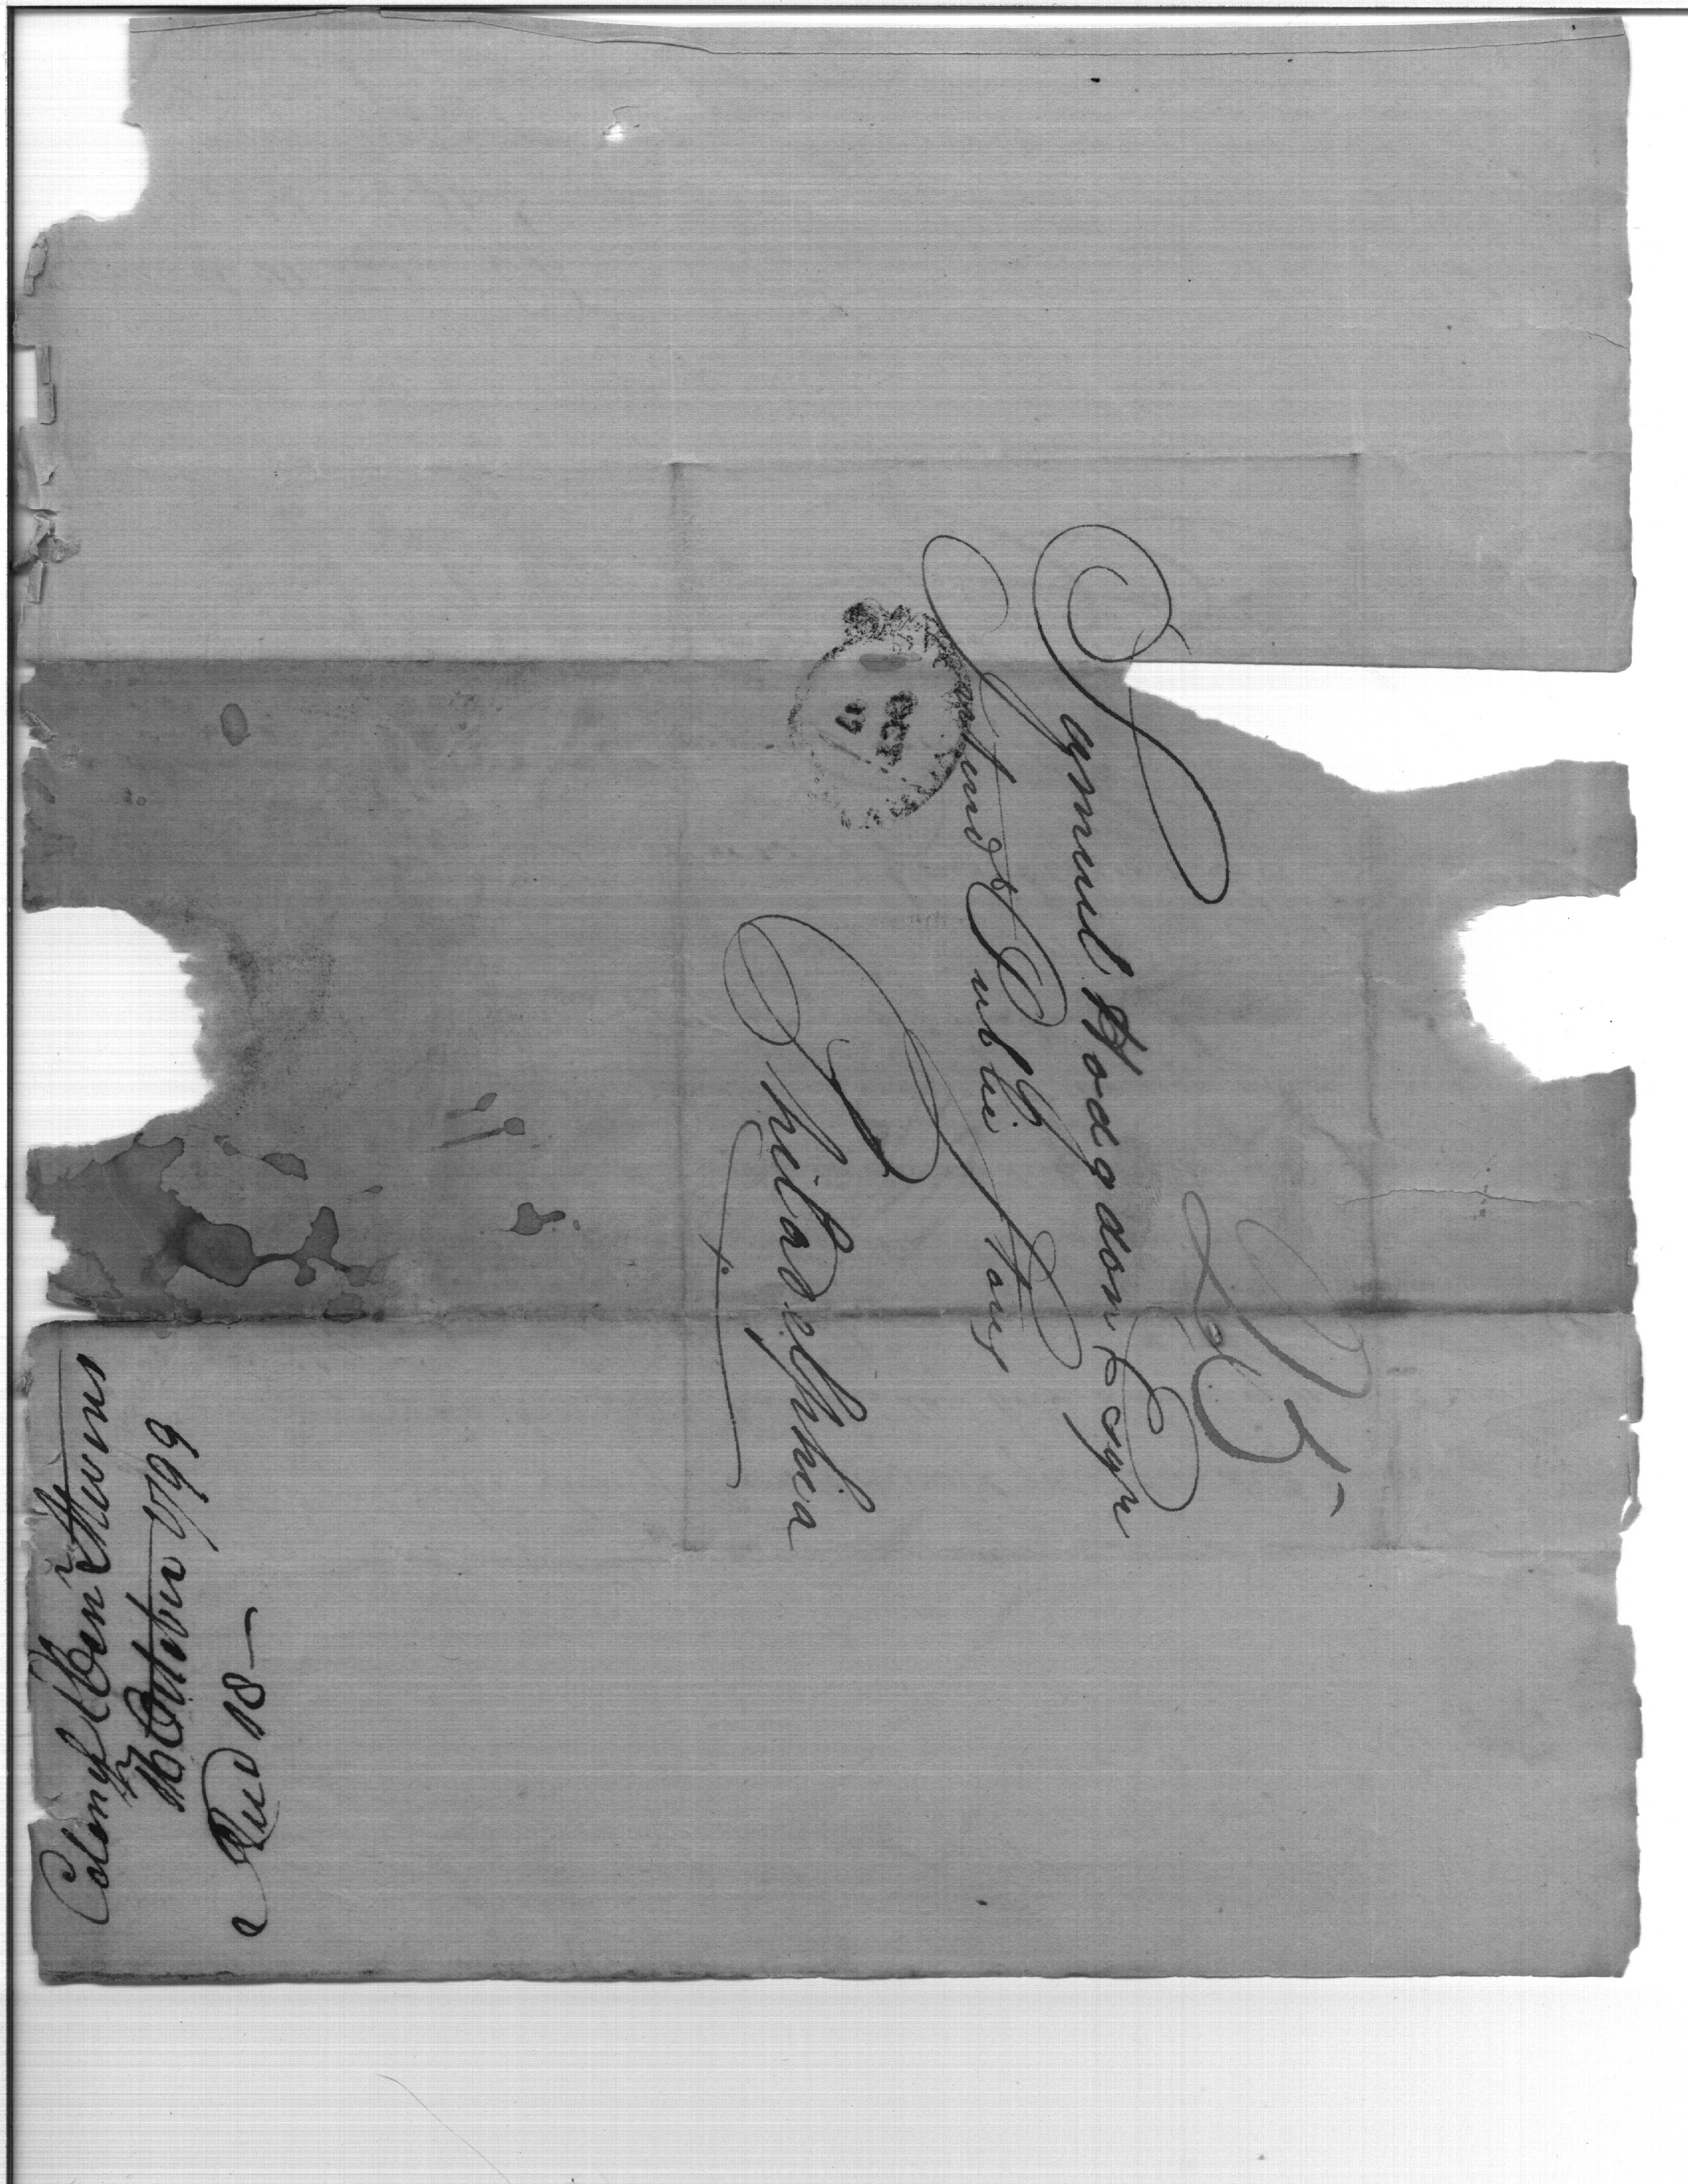 25
Samuel Hodgdon Esqr
Intend't Public Stores
Philadelphia
Colony Eben Stevens
16 October 1799
Recd 18—